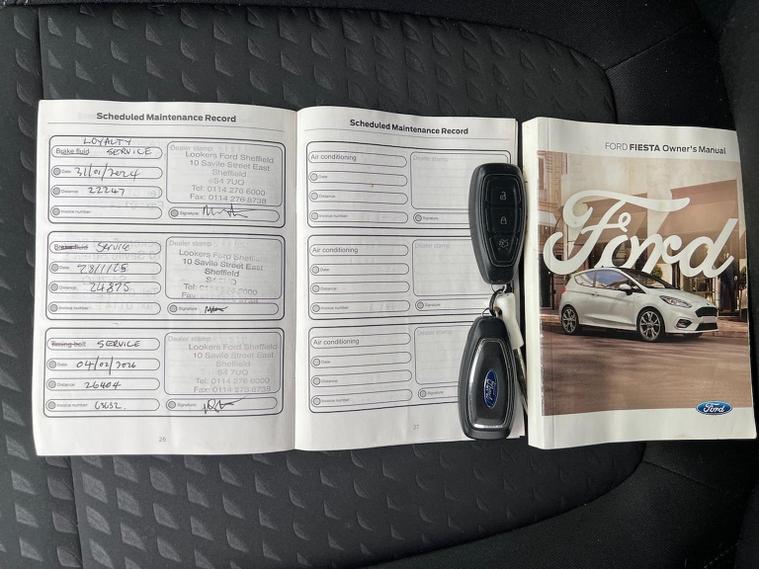 Scheduled Maintenance Record
LOYALTY
Brake fluid SERVICE
Date 31/01/2024
Distance 22247
Invoice number
Dealer stamp:
Lookers Ford Sheffield
10 Savile Street East
S4 7UQ
Tel: 0114 276 6000
Fax: 0114 278 8738
Signature:
Brake fluid Service
Date 28/1/25
Distance 24875
Invoice number
Dealer stamp:
Lookers Ford Sheffield
10 Savile Street East
Sheffield
Signature:
Timing belt SERVICE
Date 04/02/2026
Distance 26404
Invoice number
Dealer stamp:
Lookers Ford Sheffield
10 Savile Street East
Sheffield
S4 7UQ
Tel: 0114 276 6000
Signature:
26
Scheduled Maintenance Record
Air conditioning
Date
Distance
Invoice number
Dealer stamp:
Signature:
Air conditioning
Date
Distance
Invoice number
Signature:
Air conditioning
Date
Distance
Invoice number
Signature:
27
Ford
FORD FIESTA Owner's Manual
Ford
Ford